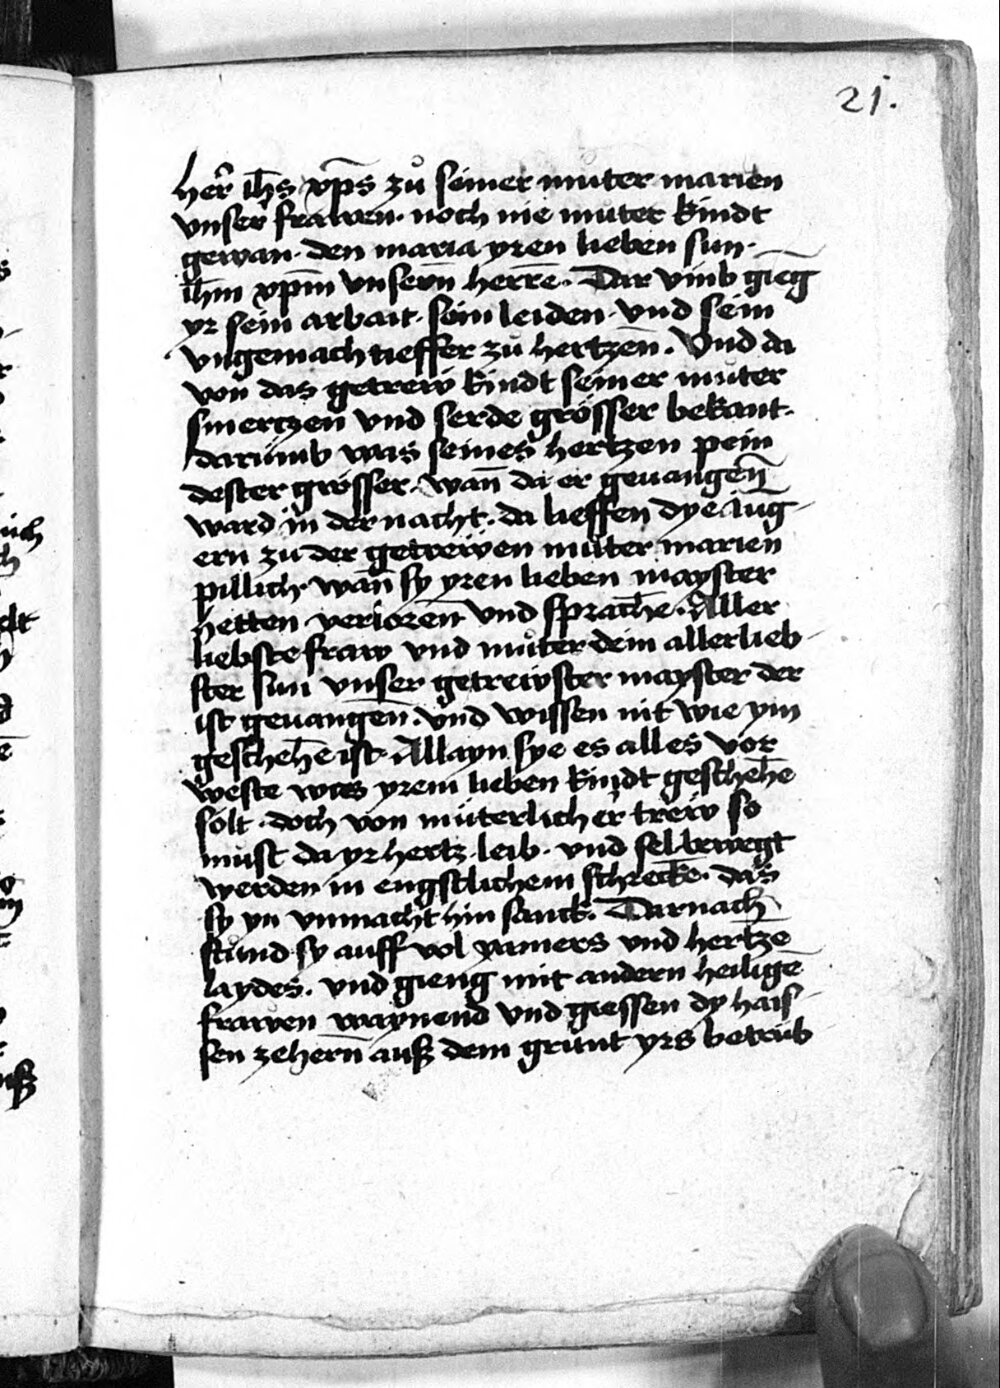 21.
her̄ ih̄s xp̄s zů seiner muter marien
vnser frawen · noch nie můter kindt
gewan · den maria yren lieben sun ·
ih̄m xp̄m vnsern̄ herrē · Dar vmb gienḡ
yr sein arbait · sein leiden · vnd sein
vngemach tieffer zů hertzen̄ . Vnd da
von das getrew kindt seiner můter
smertzen vnd serde grösser bekant ·
darumb was seines hertzen pein
dester grösser · wan̄ da er geuangen̄
ward in der nacht · da lieffen dye Junḡ
ern zu der getrewen můter marien
pillich · wan̄ sy yren lieben mayster
hetten · verloren̄ vnd sprachē · Aller
liebste fraw vnd můter dein allerlieb
ster sun vnser getrewster mayster der
ist geuangen̄ · vnd wissen nit wie ym
geschehē ist · Allayn sye es alles vor
weste was yrem lieben kindt geschehē
solt · doch von můterlicher trew so
must da yr hertz · leib · vnd sel bewegt
werden in engstlichem schreckē · das
sy yn vnmacht hin sanck · Darnach
stůnd sy auff vol yamers vnd hertzē
laydes · vnd gieng mit andern heiligē
frawen waynend vnd giessen dy hais
sen zehern̄ auß dem grunt yrs betrub